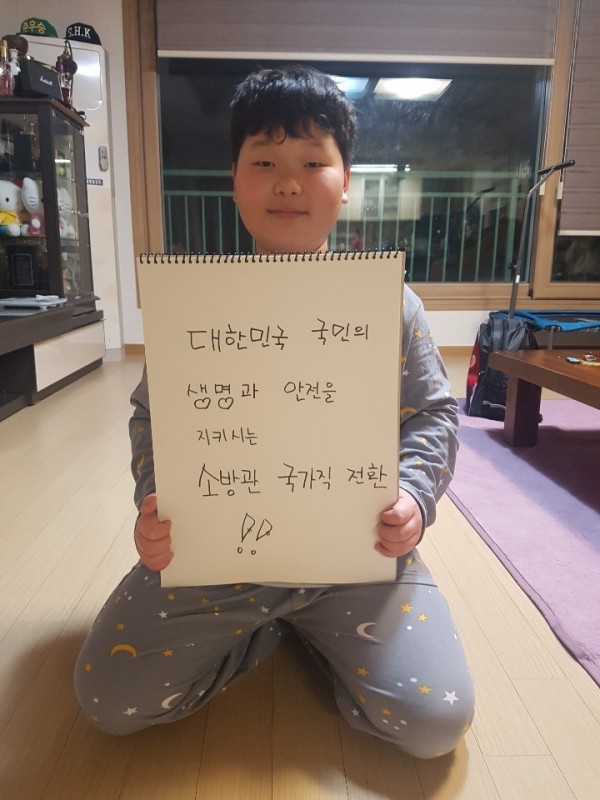 준우승
S.H.K
Marshall
대한민국 국민의
생명과 안전을
지키시는
소방관 국가직 전환
!!